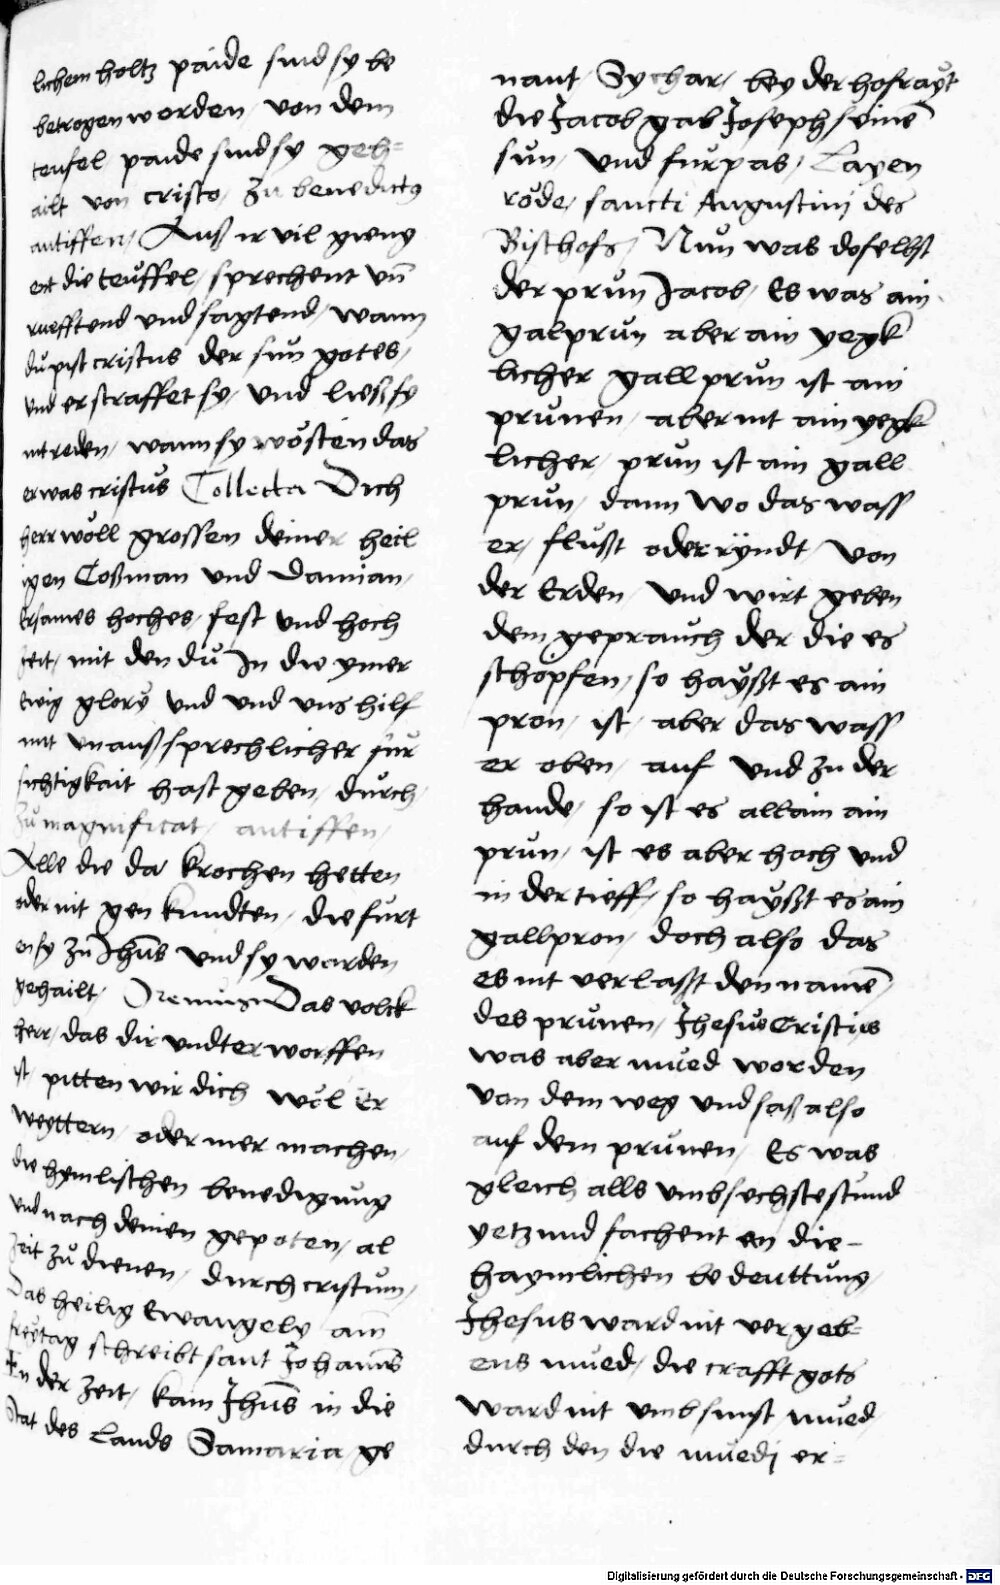 lichem holtz paide sind sy be
betrogen worden / von dem
teufel paide sind sy geh=
ailt von cristo / zu benedictꝰ
antiffen / Auß ir vil gieng
ent die teuffel / sprechent vn̄
ruefftend vnd sagtend / wann
du pist cristus der sun gotes /
vnd er straffet sy / vnd liesß sy
nit reden / wann sy wösten das
er was cristus Collecta Dich
herr wöll grossen deiner heil
igen Coßman vnd Damian /
Ersames hoches / fest vnd hoch
zeit / mit den du In die ymer
Ewig glory vnd vnd vns hilf
mit vnaußsprechlicher für
sichtigkait hast geben / durch /
zu magnificat / antiffen /
Alle die da krochen hetten
oder nit gen kundten / die furt
en sy zu Jhūs vnd sy warden
gehailt / Oremus Das volck
herr / das dir vndter worffen
ist pitten wir dich wöl Er
weyttern / oder mer machen /
die hymlischen benedigung
vnd nach deinen gepoten / al
zeit zu dienen / durch cristum /
Das heilig Ewangely am
freytag schreibt sant Johannes
In der zeit / kam Jhūs in die
Stat des Lands Samaria / ge
nant / Sychar / bey der hofrayt
die Jacob gab Joseph seinē
sun / vnd fürpas / Layen
röde / sancti Augustinj des
Bischofs / Nun was doselbst
der prun Jacob / Es was ain
galprun aber ain yegk
licher gallprun ist ain
prunen / aber nit ain yegk
licher / prun ist ain gall
prun / dann wo das wass
er / flußt oder rÿndt / von
der Erden / vnd wirt geben
dem geprauch der die es
schöpfen / so hayßt es ain
pron / ist / aber das wass
er oben / auf vnd zu der
hande / so ist es allain ain
prun / ist es aber hoch vnd
in der tieff / so hayßt es ain
gallpron / doch also das
es nit verlaßt den namē /
des prunen / Jhesus Cristus
was aber mued worden
von dem weg vnd saß also
auf dem prunen / Es was
gleich alls vmb sechste stund
yetzund fachent en die=
haymlichen bedeuttung /
Jhesus ward nit vergeb=
ens mued / die crafft gots
ward nit vmb sunst mued /
durch den die muedj er=
Digitalisierung gefördert durch die Deutsche Forschungsgemeinschaft - DFG